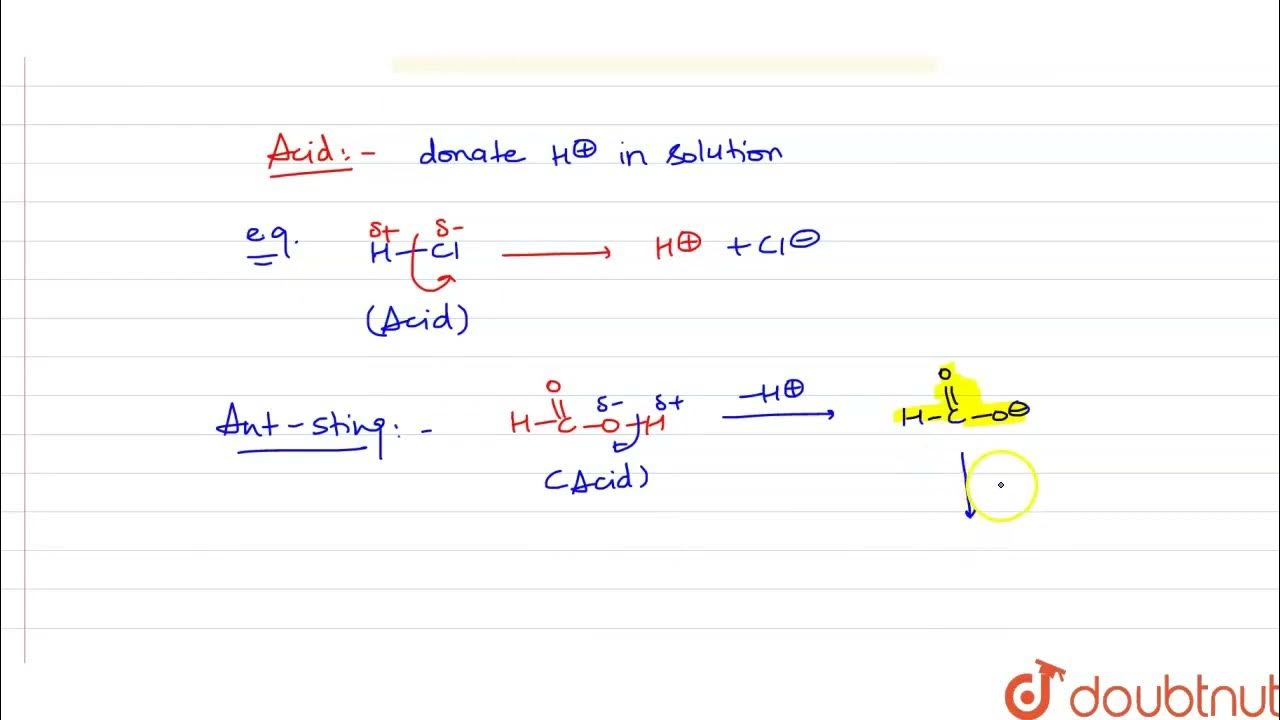 Acid:- donate H⊕ in solution
e.g. δ+ δ-
H-Cl → H⊕ + Cl⊖
(Acid)
O -H⊕ O
Ant-sting:- H-C-O-H δ- δ+ → H-C-O⊖
(Acid)
doubtnut